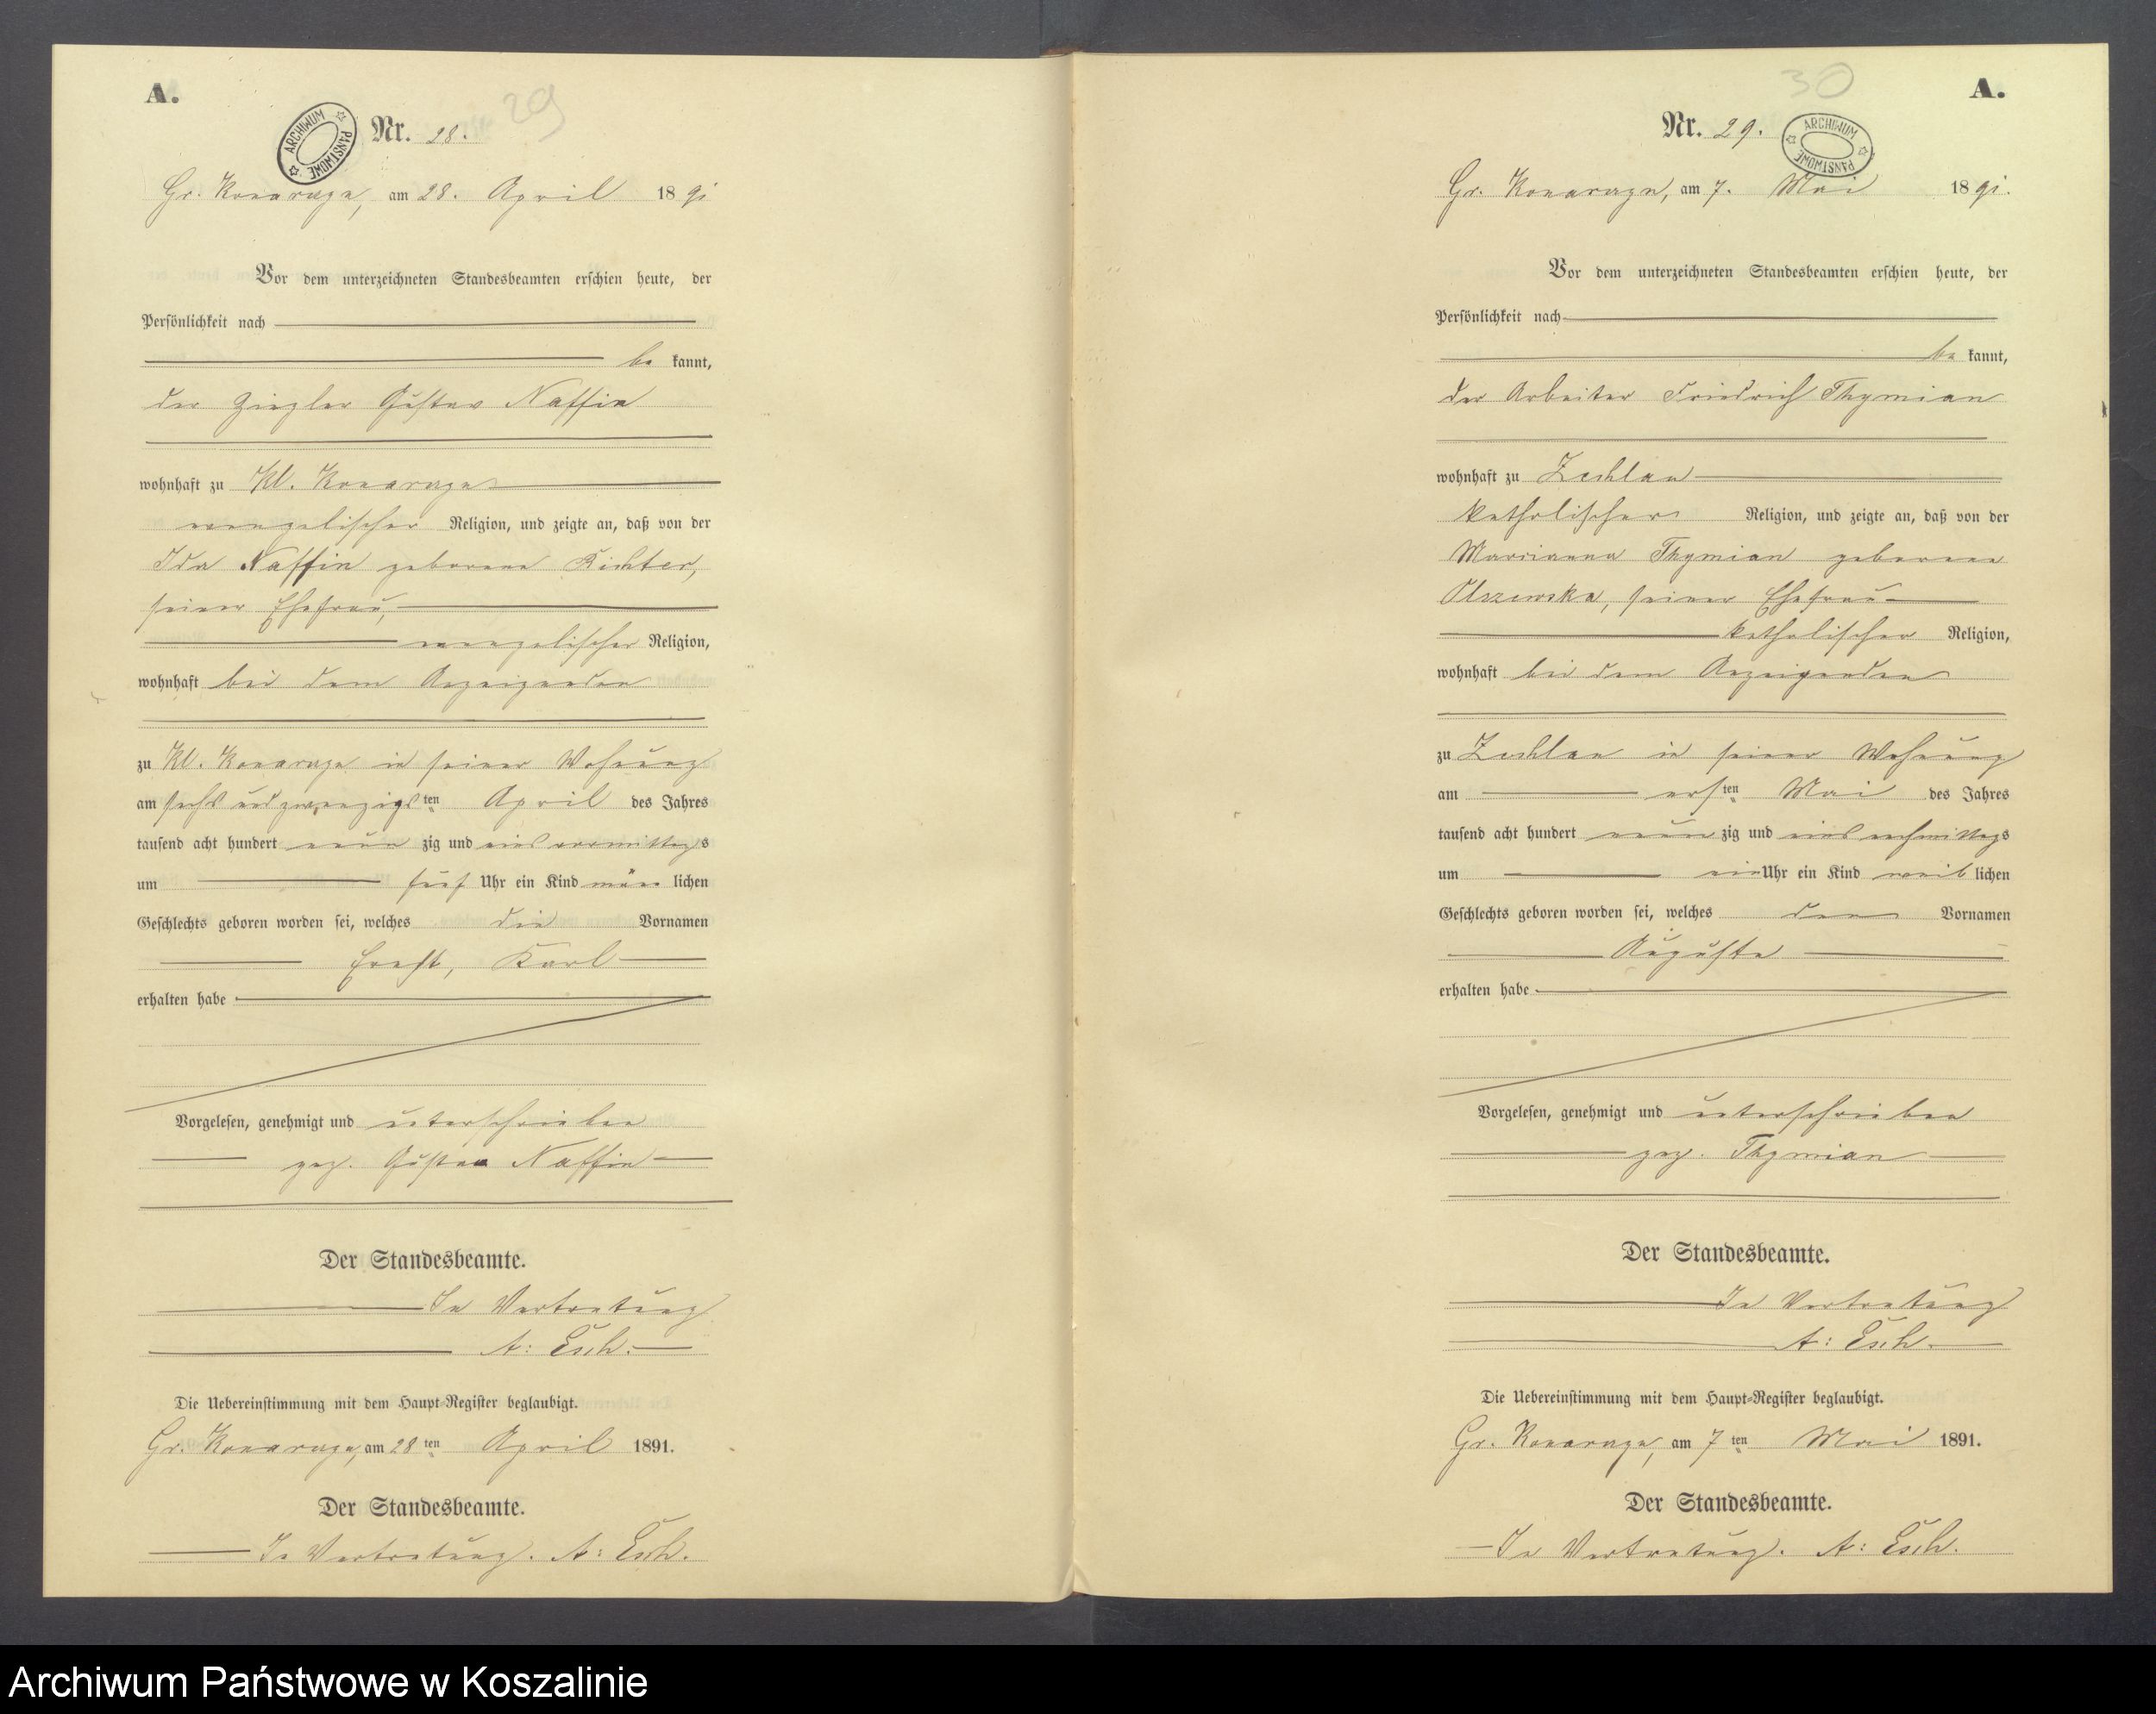 A.
29
Nr. 28.
ARCHIWUM PAŃSTWOWE
Gr. Konarzyn, am 28. April 1891
Vor dem unterzeichneten Standesbeamten erschien heute, der
Persönlichkeit nach
be kannt,
der Ziegler Gustav Naffin
wohnhaft zu Kl. Konarzyn
evangelischer Religion, und zeigte an, daß von der
Ida Naffin geborene Richter,
seiner Ehefrau,
evangelischer Religion,
wohnhaft bei dem Anzeigenden
zu Kl. Konarzyn in seiner Wohnung
am sechs und zwanzigsten April des Jahres
tausend acht hundert neun zig und eins vormittags
um fünf Uhr ein Kind män lichen
Geschlechts geboren worden sei, welches die Vornamen
Ernst, Karl
erhalten habe
Vorgelesen, genehmigt und unterschrieben
gez. Gustav Naffin
Der Standesbeamte.
In Vertretung
A: Esch.
Die Uebereinstimmung mit dem Haupt-Register beglaubigt.
Gr. Konarzyn, am 28 ten April 1891.
Der Standesbeamte.
In Vertretung. A: Esch.
30
A.
Nr. 29.
ARCHIWUM PAŃSTWOWE
Gr. Konarzyn, am 7. Mai 1891.
Vor dem unterzeichneten Standesbeamten erschien heute, der
Persönlichkeit nach
be kannt,
der Arbeiter Friedrich Thymian
wohnhaft zu Zechlau
katholischer Religion, und zeigte an, daß von der
Marianna Thymian geborene
Olszewska, seiner Ehefrau
katholischer Religion,
wohnhaft bei dem Anzeigenden
zu Zechlau in seiner Wohnung
am ersten Mai des Jahres
tausend acht hundert neun zig und eins nachmittags
um ein Uhr ein Kind weib lichen
Geschlechts geboren worden sei, welches den Vornamen
Auguste
erhalten habe
Vorgelesen, genehmigt und unterschrieben
gez. Thymian
Der Standesbeamte.
In Vertretung
A: Esch.
Die Uebereinstimmung mit dem Haupt-Register beglaubigt.
Gr. Konarzyn, am 7 ten Mai 1891.
Der Standesbeamte.
In Vertretung. A: Esch.
Archiwum Państwowe w Koszalinie